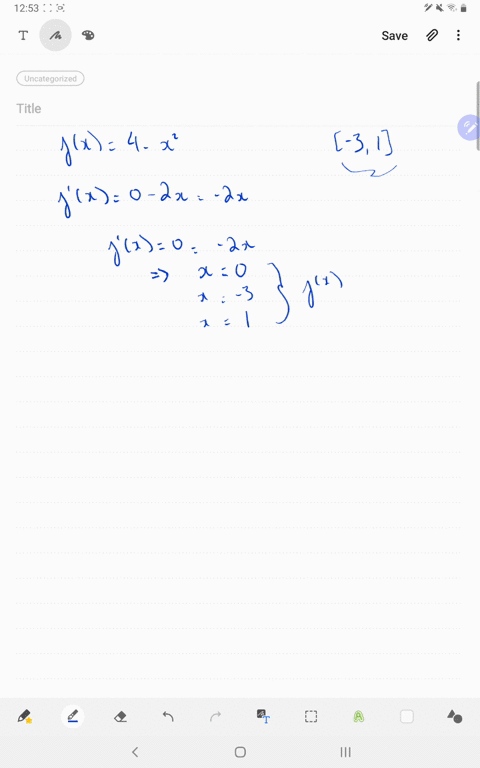 12:53
T
Save
Uncategorized
Title
f(x) = 4 - x² [-3, 1]
f'(x) = 0 - 2x = -2x
f'(x) = 0 = -2x
=> x = 0
x = -3 } f(x)
x = 1
T
A